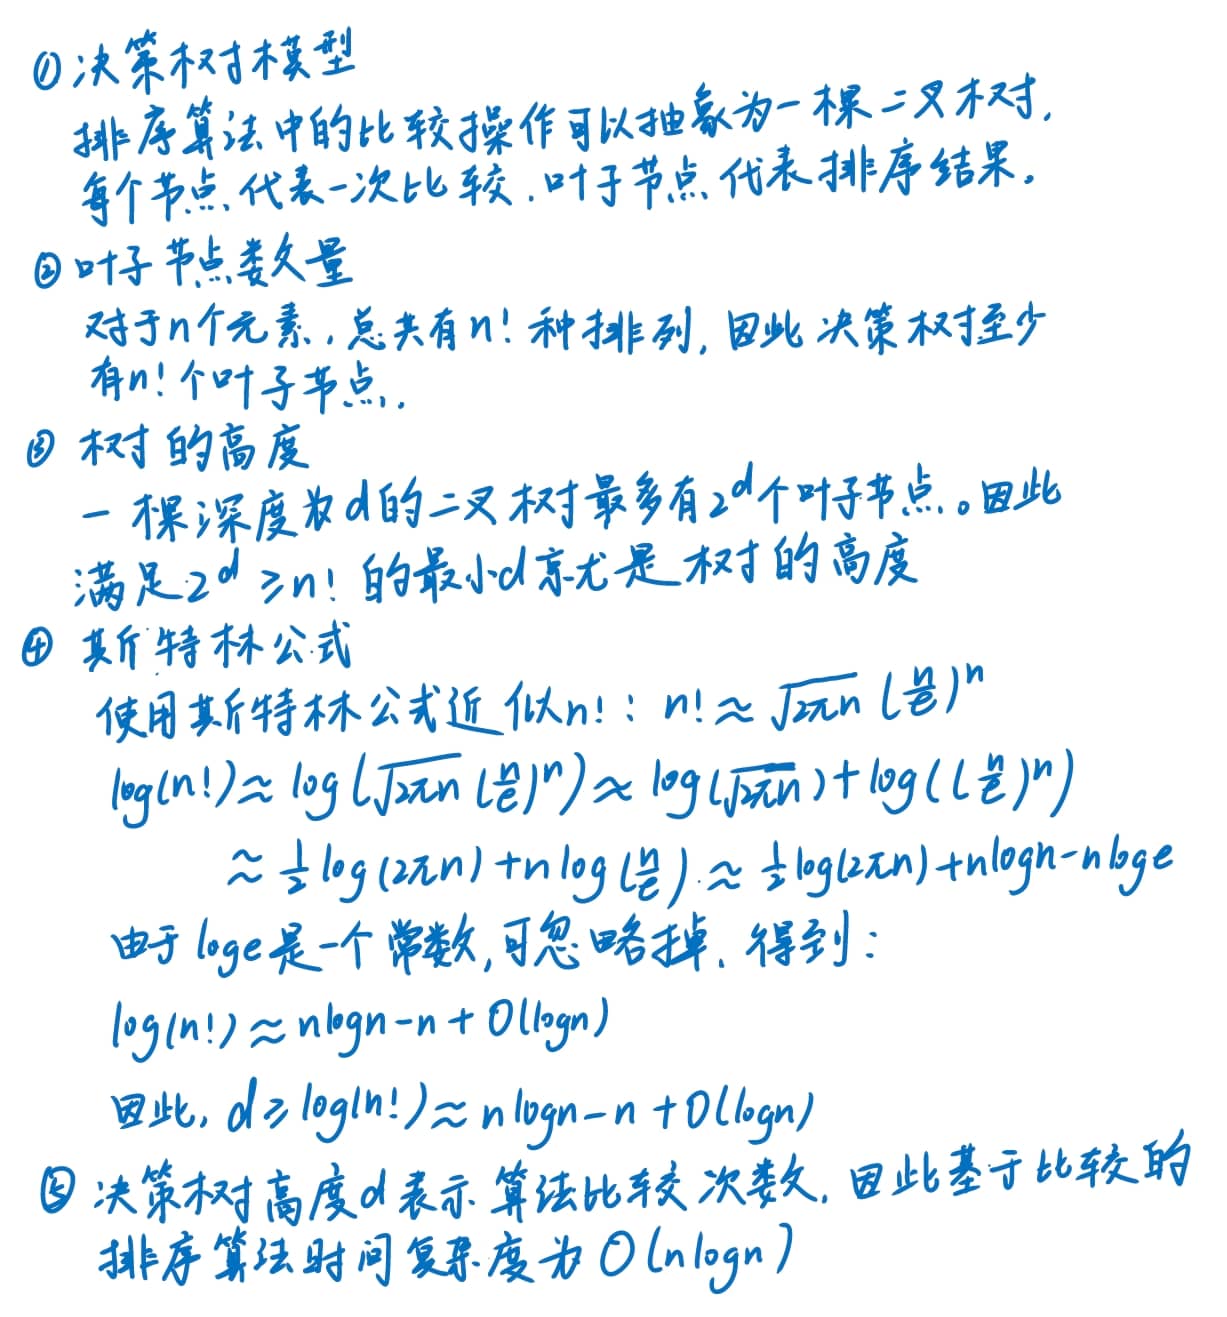 ① 决策树模型
排序算法中的比较操作可以抽象为一棵二叉树，
每个节点代表一次比较，叶子节点代表排序结果。
② 叶子节点数量
对于n个元素，总共有n！种排列，因此决策树至少
有n！个叶子节点．
③ 树的高度
一棵深度为d的二叉树最多有2^d个叶子节点。因此
满足2^d ≥ n! 的最小d就是树的高度
④ 斯特林公式
使用斯特林公式近似n!：n! ≈ √(2πn) (n/e)^n
log(n!) ≈ log(√(2πn) (n/e)^n) ≈ log(√(2πn)) + log((n/e)^n)
≈ 1/2 log(2πn) + n log(n/e) ≈ 1/2 log(2πn) + nlogn - nloge
由于loge是一个常数，可忽略掉，得到：
log(n!) ≈ nlogn - n + O(logn)
因此，d ≥ log(n!) ≈ nlogn - n + O(logn)
⑤ 决策树高度d表示算法比较次数，因此基于比较的
排序算法时间复杂度为O(nlogn)